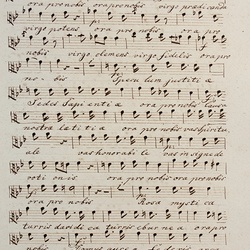 ora pro nobis ora pro nobis virgo praedicanda
virgo potens ora pro nobis
nobis virgo clemens virgo fidelis ora pro
nobis Speculum justitiae
Sedes Sapientiae ora pro nobis Causa
nostrae letitiae ora pro nobis vas spiritu
ale vas honorabile vas insigne de
votionis ora pro nobis ora pro nobis
ora pro nobis Rosa mystica
turris davidica turris eburnea ora pro
nobis Domus aurea